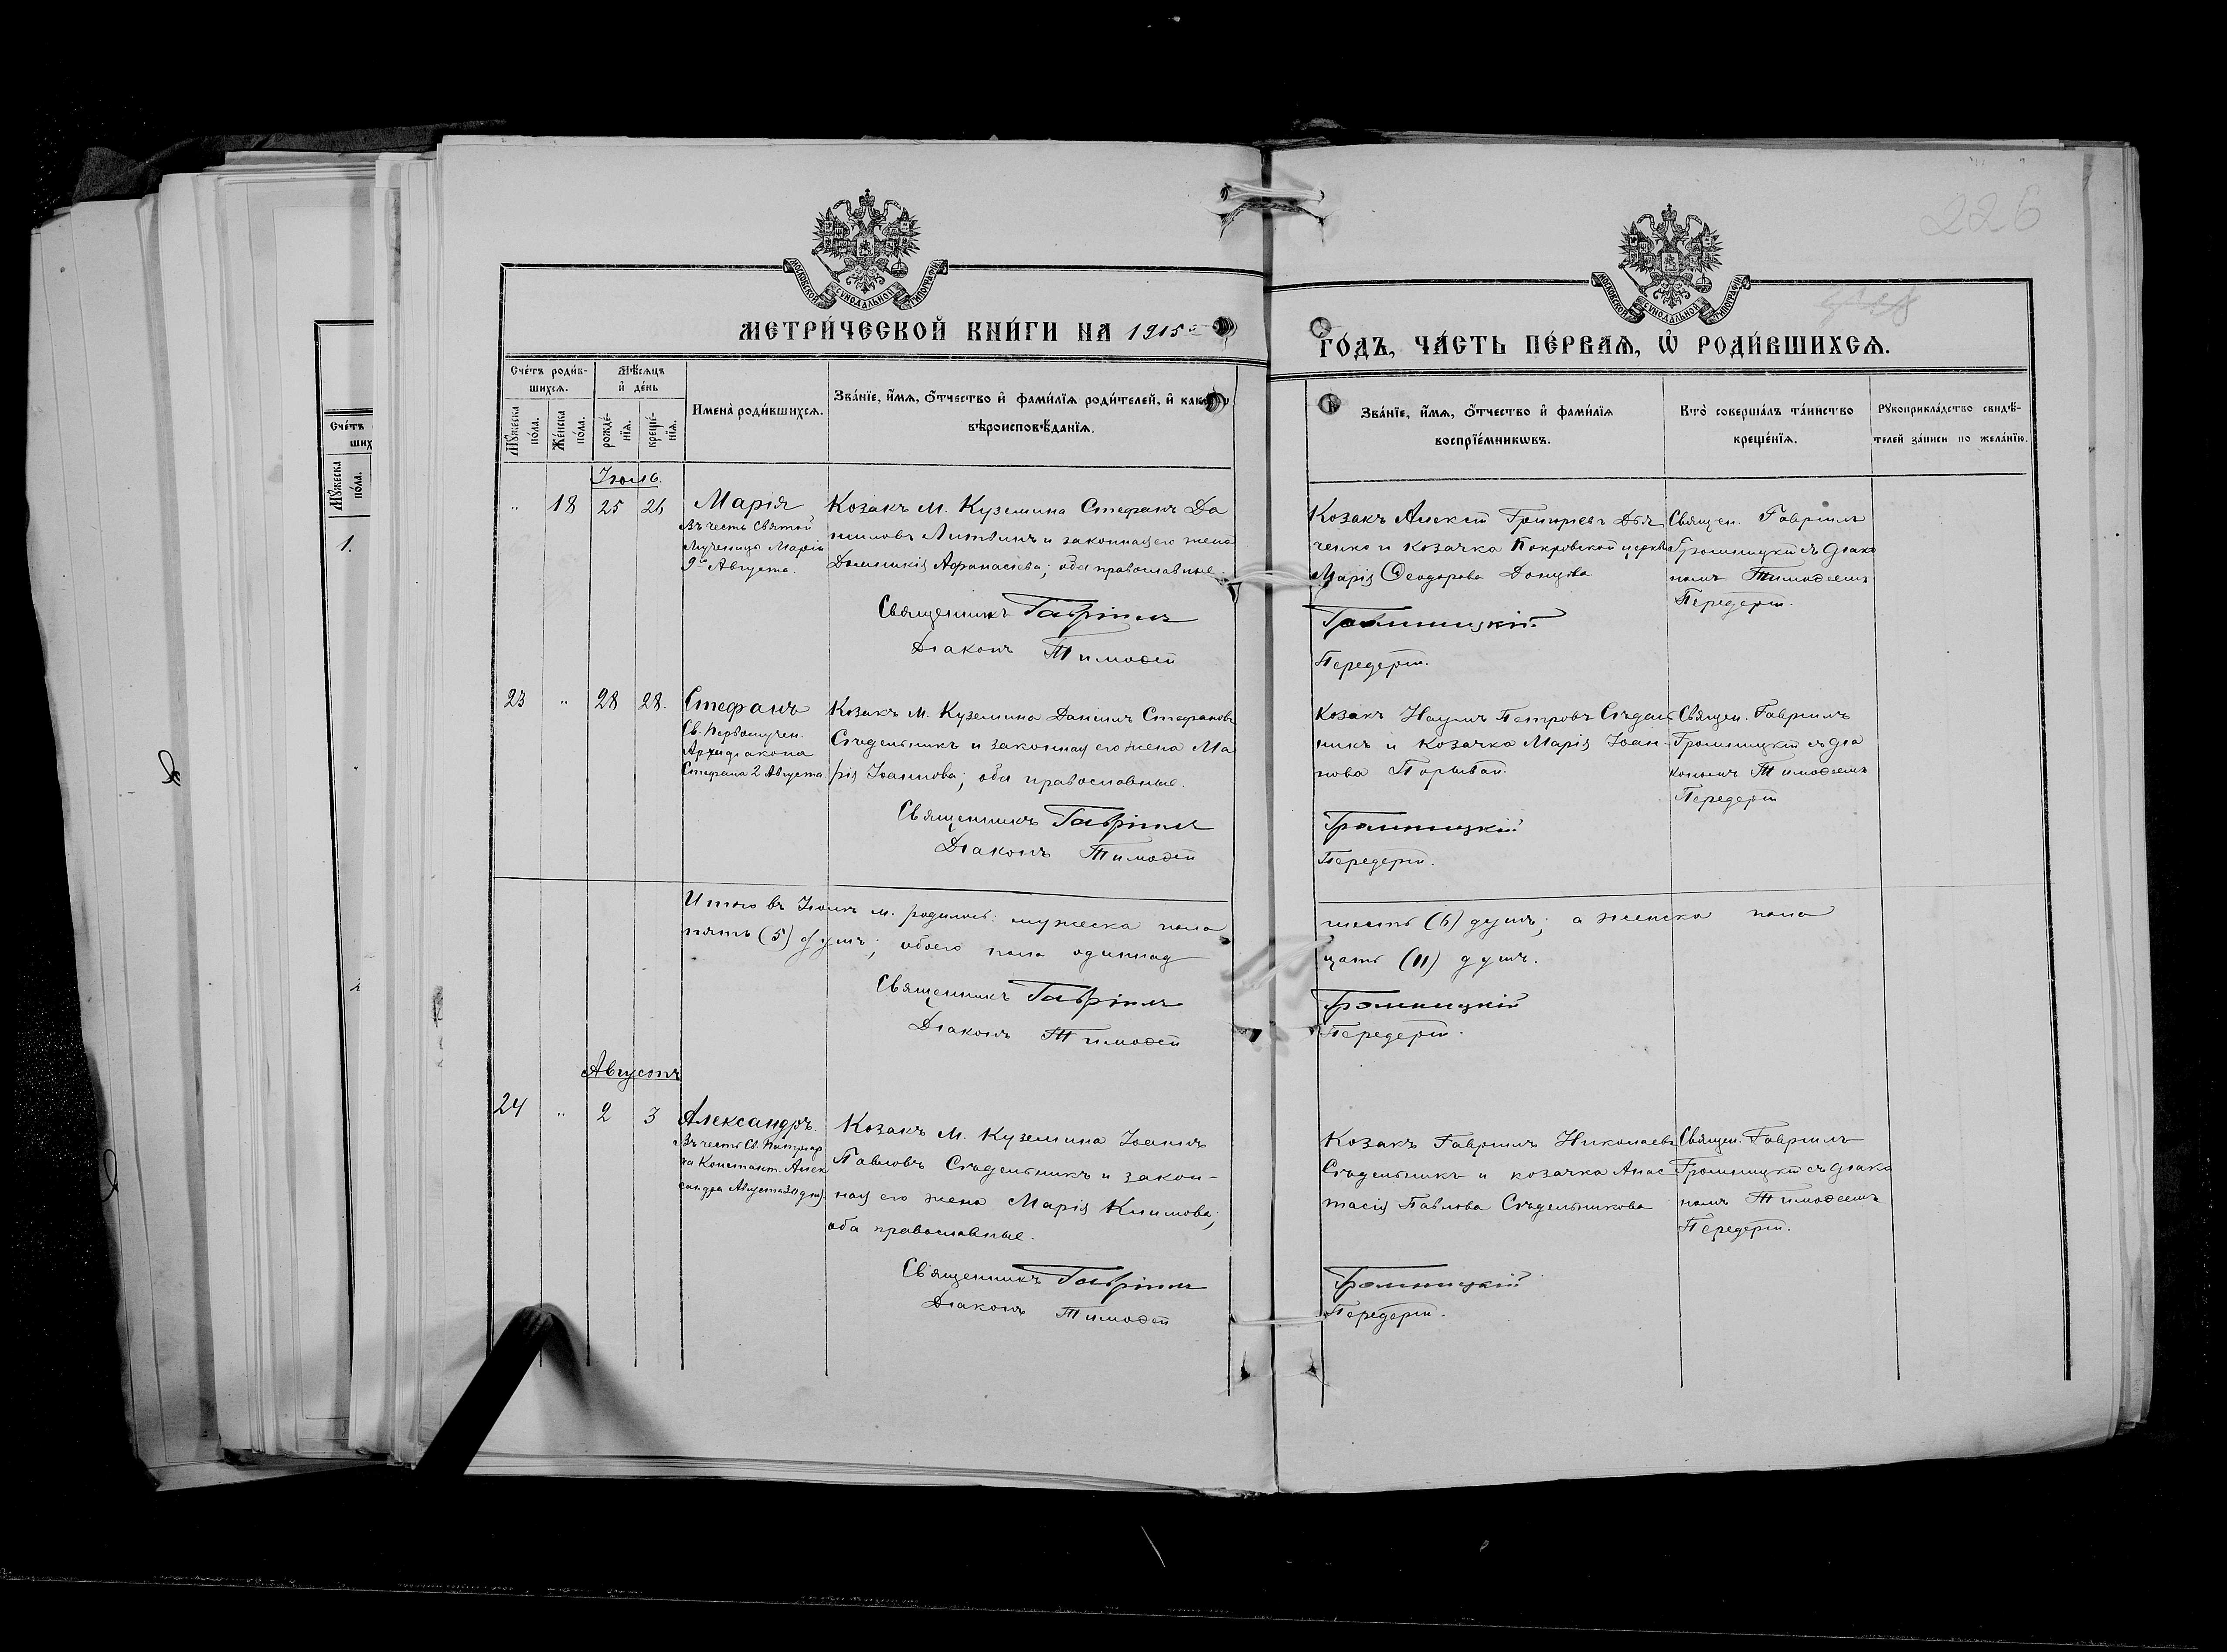 226
МОСКОВСКОЙ СѴНОДАЛЬНОЙ ТИПОГРАФІИ
МОСКОВСКОЙ СѴНОДАЛЬНОЙ ТИПОГРАФІИ
МЕТРИ́ЧЕСКОЙ КНИ́ГИ НА 1915
ГО́ДЪ, ЧА́СТЬ ПЕ́РВАЯ, Ѡ РОДИ́ВШИХСЯ.
Сче́тъ роди́в-
шихся.
Мѣ́сяцъ
и де́нь
Му́жеска
по́ла.
Же́нска
по́ла.
рожде́-
нія.
креще́-
нія.
Имена̀ роди́вшихся.
Зва́ніе, и́мя, о́тчество и фами́лія роди́телей, и
вѣроисповѣ́данія.
Зва́ніе, и́мя, о́тчество и фами́лія
воспріе́мникѡвъ.
Кто̀ соверша́лъ та́инство
креще́нія.
Рукоприкла́дство свидѣ́-
телей за́писи по жела́нію.
Сче́тъ
ших
Му́жеска
по́ла.
1.
Іюль.
" 18 25 26
Марія
Въ честь Святой
Мученицы Маріи
9го Августа.
Козакъ М. Куземина Стефанъ Да
ниловъ Литвинъ и законная его жена
Домникія Афанасіева; оба православные.
Священникъ Гавріилъ
Діаконъ Тимоѳей
Козакъ Алексій Григорьевъ Дья
ченко и козачка Покровской церкви
Марія Ѳеодорова Донцова
Громницкій
Передерій.
Священ. Гавриилъ
Громницкій съ діако
номъ Тимоѳеемъ
Передерій.
23 " 28 28.
Стефанъ
Св. Первомучен.
Архидіакона
Стефана 2 Августа
Козакъ М. Куземина Даніилъ Стефановъ
Съдельникъ и законная его жена Ма
рія Іоаннова; оба православные.
Священникъ Гавріилъ
Діаконъ Тимоѳей
Козакъ Наумъ Петровъ Съдель
никъ и козачка Марія Іоан-
нова
Громницкій
Передерій.
Священ. Гавриилъ
Громницкій съ діа
кономъ Тимоѳеемъ
Передерій
Итого въ Іюлѣ м. родилось: мужеска пола
пять (5) душъ; обоего пола одиннад
Священникъ Гавріилъ
Діаконъ Тимоѳей
шесть (6) душъ; а женска пола
цать (11) душъ.
Громницкій
Передерій.
Августъ
24 " 2 3
Александръ.
Въ честь Св. Патріар
ха Констант. Алек
сандра Августа 30 дня
Козакъ М. Куземина Іоаннъ
Павловъ Съдельникъ и закон-
ная его жена Марія Климова;
оба православные.
Священникъ Гавріилъ
Діаконъ Тимоѳей
Козакъ Гавриилъ Николаевъ
Съдельникъ и козачка Анас
тасія Павлова Съдельникова
Громницкій
Передерій.
Священ. Гавриилъ
Громницкій съ діако
номъ Тимоѳеемъ
Передерій.